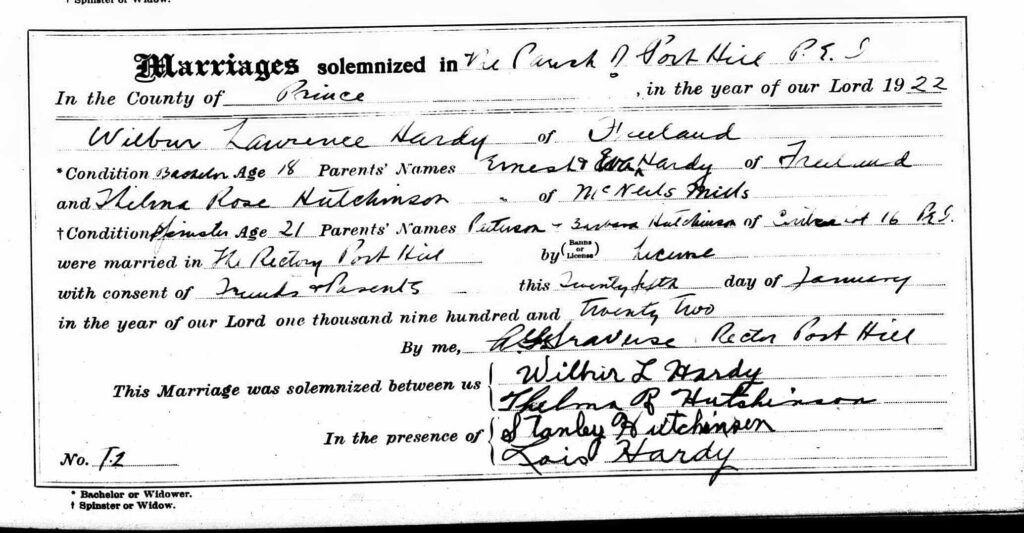 † Spinster or Widow.
Marriages solemnized in the Parish of Port Hill P.E.I
In the County of Prince, in the year of our Lord 1922
Wilbur Lawrence Hardy of Freeland
*Condition Bachelor Age 18 Parents' Names Ernest & Eva Hardy of Freeland
and Thelma Rose Hutchinson " of McNeils Mills
†Condition Spinster Age 21 Parents' Names Peterson & Barbara Hutchinson of lot 16 P.E.I.
were married in The Rectory Port Hill by (Banns or License) License
with consent of Friends & Parents this Twenty day of January
in the year of our Lord one thousand nine hundred and twenty Two
By me, Rector Port Hill
This Marriage was solemnized between us { Wilbur L Hardy
Thelma R Hutchinson
In the presence of { Stanley Hutchinson
Lois Hardy
No. 12
* Bachelor or Widower.
† Spinster or Widow.